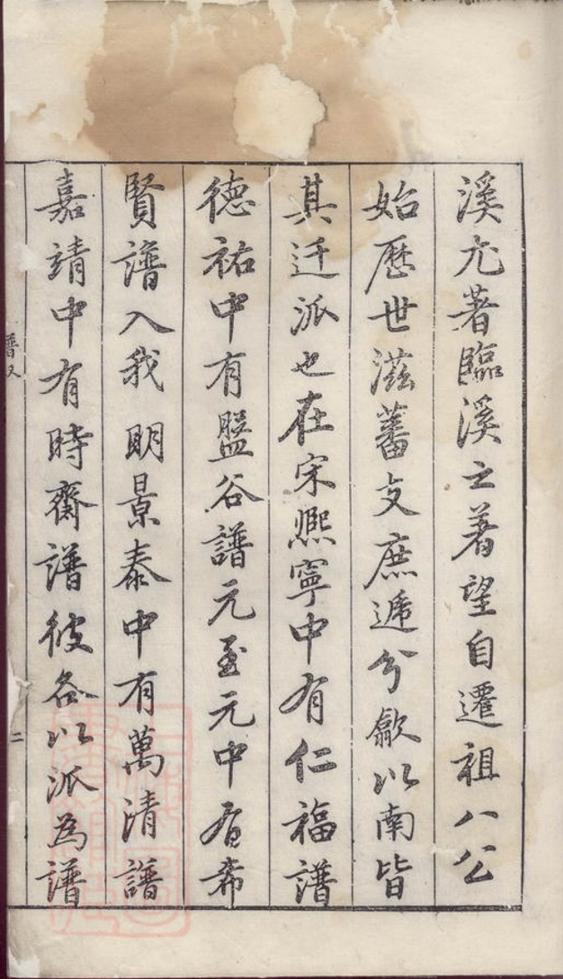 溪尤著臨溪之著望自遷祖八公
始歷世滋蕃支庶遞分歙以南皆
其迁派也在宋熈寧中有仁福譜
德祐中有盤谷譜元至元中有希
賢譜入我 明景泰中有萬清譜
嘉靖中有時齋譜彼各以派為譜
二